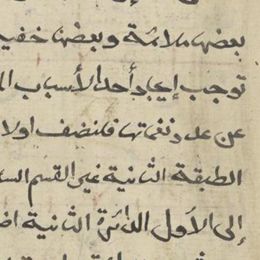 بعضها ملائمة وبعضها خفية
توجب إيجاد أحد الأسباب
عن عدد نغماتها فلنضف أولا
الطبقة الثانية غير القسم
إلى الأول الدائرة الثانية